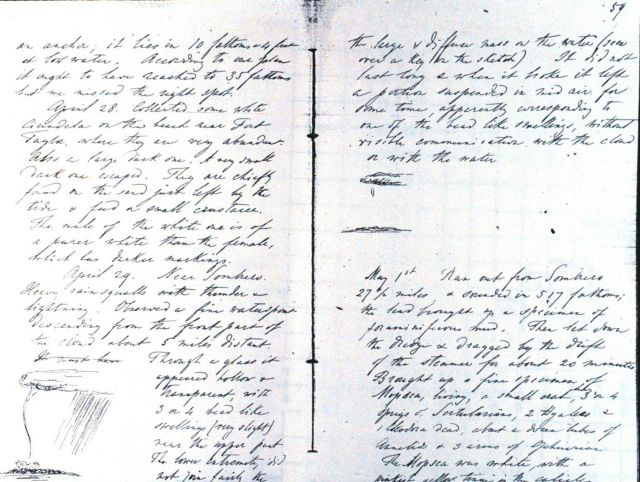 an anchor; it lies in 10 fathoms & 4 feet
at low water. According to our plan
it ought to have reached to 35 fathoms
but we missed the right spot.
April 28. Collected some white
Cicindela on the beach near Fort
Taylor, where they are very abundant.
Also a large dark one. A very small
dark one escaped. They are chiefly
found on the sand just left by the
tide & feed on small crustacea.
The male of the white one is of
a purer white than the female,
which has darker markings.
April 29. Near Sombrero.
Heavy rainsqualls with thunder &
lightning. Observed a fine waterspout
descending from the front part of
the cloud about 5 miles distant.
It must have
Through a glass it
appeared hollow &
transparent, with
3 or 4 bead like
swellings (very slight)
near the upper part
The lower extremity did
not join fairly the
59
the large & diffuse mass on the water (seen
over a Key on the sketch) It did not
last long & when it broke it left
a portion suspended in mid air for
some time, apparently corresponding to
one of the bead like swellings, without
visible communication with the cloud
or with the water
May 1st Ran out from Sombrero
27 1/2 miles, & sounded in 517 fathoms;
the lead brought up a specimen of
foraminiferous mud. Then let down
the dredge & dragged by the drift
of the steamer for about 20 minutes
Brought up a fine specimen of
Mopsea, living, a small crab, 3 or 4
sprigs of Sertularians, 2 Hyalea &
Cleodora dead, about a dozen tubes of
Annelids & 3 arms of Ophiurian
The Mopsea was white, with a
yellow tinge in the